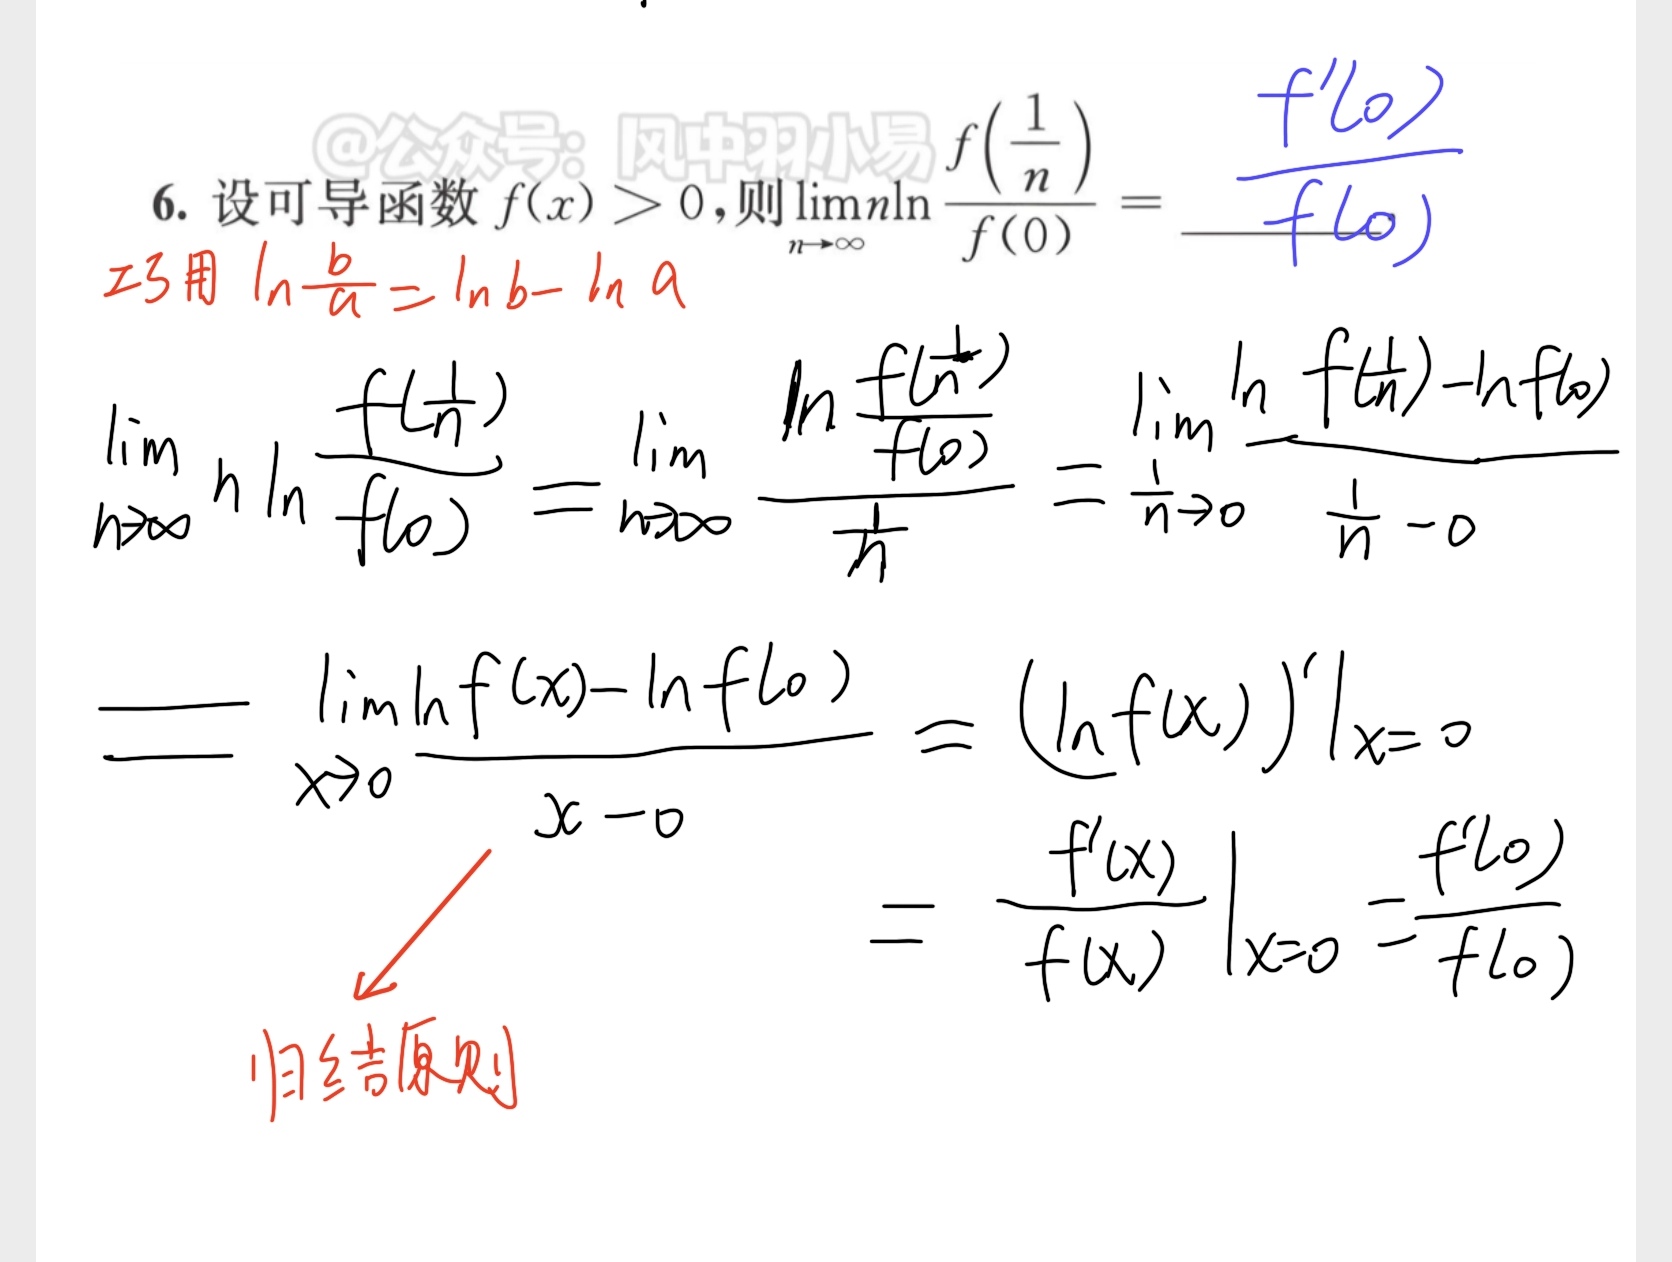 @公众号：风中羽小易
6. 设可导函数 f(x) > 0,则 lim_{n→∞} n ln \frac{f(\frac{1}{n})}{f(0)} = \frac{f'(0)}{f(0)}
巧用 ln \frac{b}{a} = ln b - ln a
lim_{n→∞} n ln \frac{f(\frac{1}{n})}{f(0)} = lim_{n→∞} \frac{ln \frac{f(\frac{1}{n})}{f(0)}}{\frac{1}{n}} = lim_{\frac{1}{n}→0} \frac{ln f(\frac{1}{n}) - ln f(0)}{\frac{1}{n} - 0}
= lim_{x→0} \frac{ln f(x) - ln f(0)}{x - 0} = (ln f(x))'|_{x=0}
= \frac{f'(x)}{f(x)}|_{x=0} = \frac{f'(0)}{f(0)}
归结原则